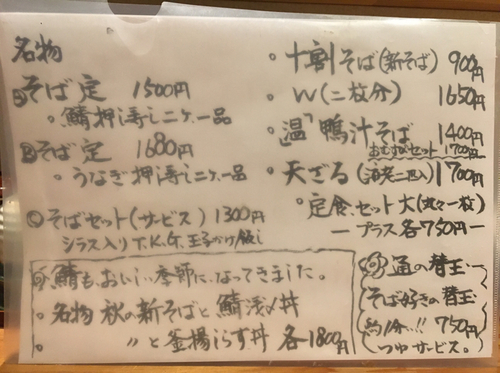 名物
Ⓐそば定 1500円
・鯖押し寿し二ケ、一品
Ⓑそば定 1680円
・うなぎ押し寿し二ケ、一品
Ⓒそばセット(サービス) 1300円
シラス入りT.K.G.玉子かけ飯し
・十割そば(新そば) 900円
・W(二枚分) 1650円
・「温」鴨汁そば 1400円
おむすびセット 1700円
・天ざる(海老二匹入) 1700円
・定食、セット大(丸々一枚)
ープラス各750円ー
鯖もおいしい季節になってきました。
・名物 秋の新そばと鯖浅〆丼
・〃と釜揚しらす丼 各1800円
通の替玉
そば好きの替玉
約1分…!! 750円
つゆサービス。